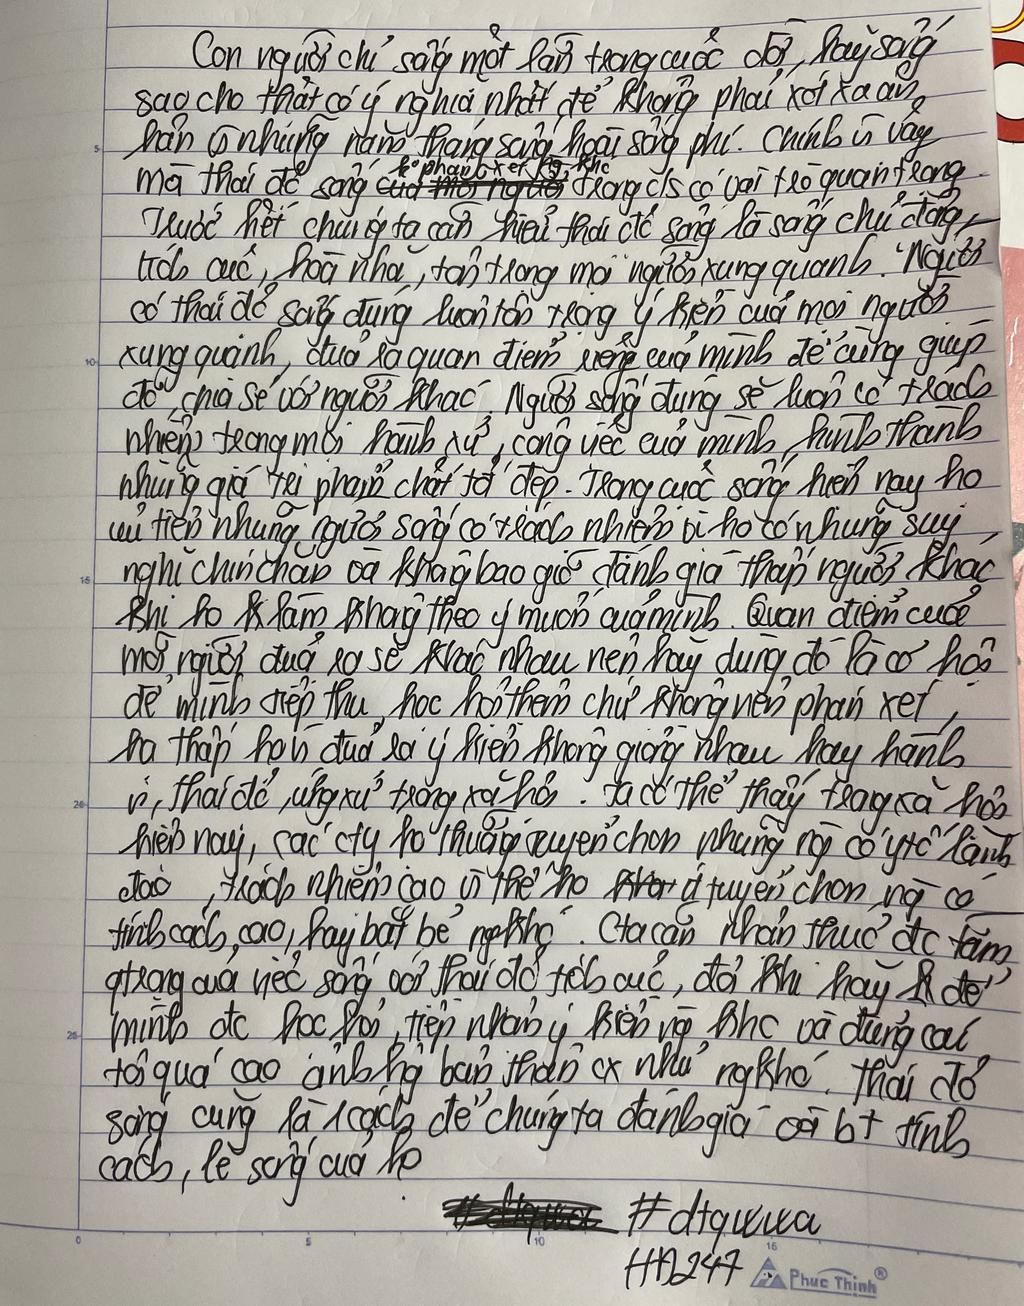 Con người chỉ sống một lần trong cuộc đời, hãy sống
sao cho thật có ý nghĩa nhất để không phải xót xa ân
hận vì những năm tháng sống hoài sống phí. Chính vì vậy
mà thái độ sống ko phán xét ng khc trong c/s có vai trò quan trọng
Trước hết chúng ta cần hiểu thái độ sống là sống chủ động,
tích cực, hoà nhã, tôn trọng mọi người xung quanh. Người
có thái độ sống đúng luôn tôn trọng ý kiến của mọi người
xung quanh, đưa ra quan điểm riêng của mình để cùng giúp
đỡ, chia sẻ với người khác. Người sống đúng sẽ luôn có trách
nhiệm trong mọi hành xử, công việc của mình, hình thành
những giá trị phẩm chất tốt đẹp. Trong cuộc sống hiện nay họ
ưu tiên những người sống có trách nhiệm vì họ có những suy
nghĩ chín chắn và không bao giờ đánh giá thấp người khác
khi họ k làm không theo ý muốn của mình. Quan điểm của
mỗi người đưa ra sẽ khác nhau nên hãy dùng đó là cơ hội
để mình tiếp thu, học hỏi thêm chứ không nên phán xét,
hạ thấp họ vì đưa ra ý kiến không giống nhau hay hành
vi, thái độ, ứng xử trong xã hội. Ta có thể thấy trong xã hội
hiện nay, các cty họ thường tuyển chọn những ng có ý tc lãnh
đạo, trách nhiệm cao vì thế họ ít tuyển chọn ng có
tính cách cao, hay bắt bẻ ng khc. Cta cần nhận thức đc tầm
qtrọng của việc sống với thái độ tích cực, đôi khi hãy k để
mình đc học hỏi, tiếp nhận ý kiến ng khc và đừng cái
tôi quá cao ảnh hg bản thân cx như ng khc. Thái độ
sống cũng là 1 cách để chúng ta đánh giá và bt tính
cách, lẽ sống của họ
#dtquwa
HD247
Phuc Thinh®